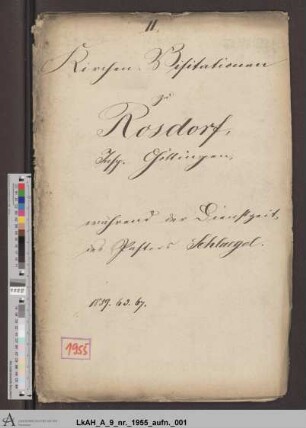 II.
Kirchen-Visitationen
zu
Rosdorf,
Insp. Göttingen,
während der Dienstzeit
des Pastors Schlaegel.
1859. 63. 67.
1955
LkAH_A_9_nr._1955_aufn._001